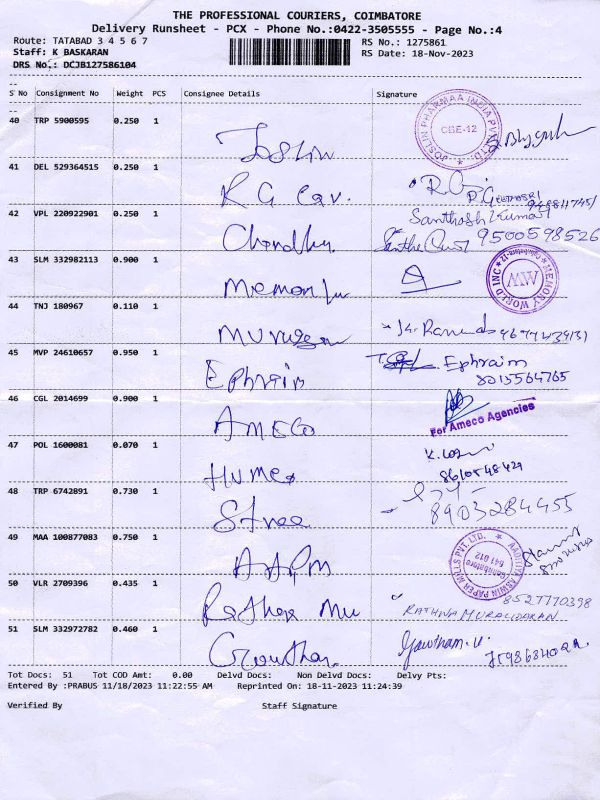 THE PROFESSIONAL COURIERS, COIMBATORE
Delivery Runsheet - PCX - Phone No.:0422-3505555 - Page No.:4
Route: TATABAD 3 4 5 6 7
RS No.: 1275861
Staff: K BASKARAN
RS Date: 18-Nov-2023
DRS No.: DCJB127586104
S'No Consignment No Weight PCS Consignee Details Signature
40 TRP 5900595 0.250 1
JOSLIN PHARMAA INDIA PVT. LTD. CBE-12
Joslin
41 DEL 529364515 0.250 1
R G Cav.
42 VPL 220922901 0.250 1
Santhosh Kumar
Chandhu 9500598526
43 SLM 332982113 0.900 1
MEMORY WORLD INC Coimbatore-12 MW
44 TNJ 180967 0.110 1
Murugesan
45 MVP 24610657 0.950 1
Ephraim Ephraim
8015564765
46 CGL 2014699 0.900 1
AMECO For Ameco Agencies
47 POL 1600081 0.070 1
Humes 8610548429
48 TRP 6742891 0.730 1
Stree 8903284455
49 MAA 100877083 0.750 1
AADITYA ASWIN PAPER MILLS PVT. LTD. Coimbatore 641 012
AAPM
50 VLR 2709396 0.435 1
8527770398
Rathna Mu RATHNA MURALIDARAN
51 SLM 332972782 0.460 1
Gowtham Gowtham. U.
Tot Docs: 51 Tot COD Amt: 0.00 Delvd Docs: Non Delvd Docs: Delvy Pts:
Entered By :PRABUS 11/18/2023 11:22:55 AM Reprinted On: 18-11-2023 11:24:39
Verified By Staff Signature